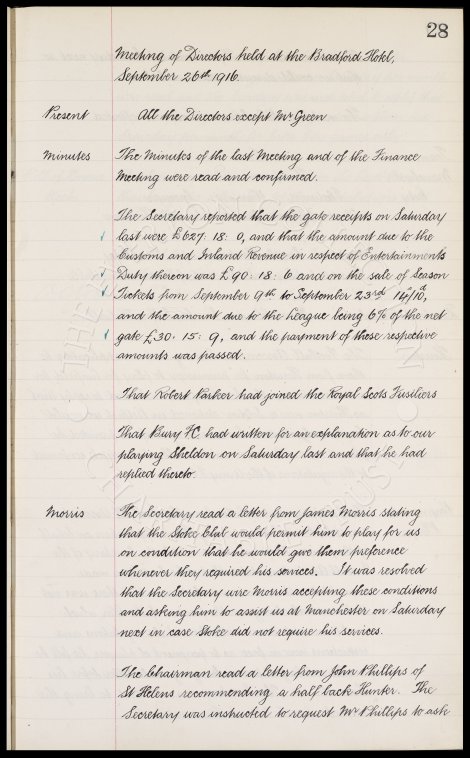 28
Meeting of Directors held at the Bradford Hotel,
September 26th 1916.
Present All the Directors except Mr Green
Minutes The Minutes of the last Meeting and of the Finance
Meeting were read and confirmed.
The Secretary reported that the gate receipts on Saturday
last were £627: 18: 0, and that the amount due to the
Customs and Inland Revenue in respect of Entertainments
Duty thereon was £90: 18: 6 and on the sale of Season
Tickets from September 9th to September 23rd 14s/10d,
and the amount due to the League being 6% of the net
gate £30: 15: 9, and the payment of these respective
amounts was passed.
That Robert Parker had joined the Royal Scots Fusiliers
That Bury FC had written for an explanation as to our
playing Sheldon on Saturday last and that he had
replied thereto.
Morris The Secretary read a letter from James Morris stating
that the Stoke Club would permit him to play for us
on condition that he would give them preference
whenever they required his services. It was resolved
that the Secretary wire Morris accepting these conditions
and asking him to assist us at Manchester on Saturday
next in case Stoke did not require his services.
The Chairman read a letter from John Phillips of
St Helens recommending a half back Hunter. The
Secretary was instructed to request Mr Phillips to ask